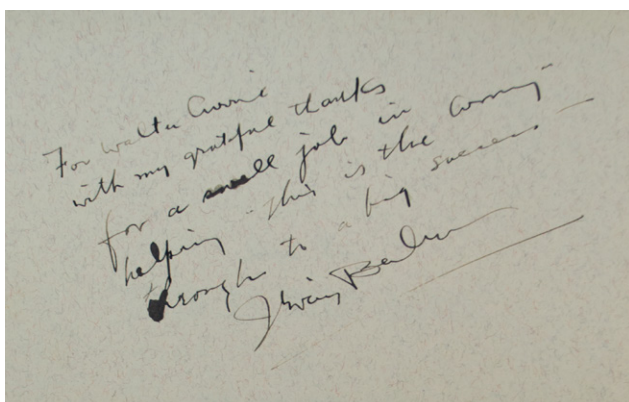 For Walter Currie
with my grateful thanks
for a swell job in
helping "This is the Army"
through to a big success —
Irving Berlin